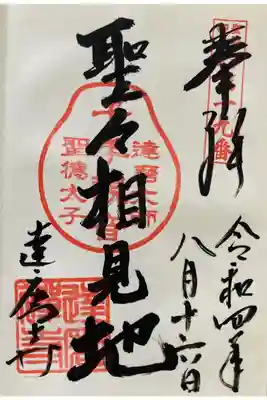 奉拝
令和四年
八月十六日
聖々相見地
達磨大師
聖徳太子
達磨寺